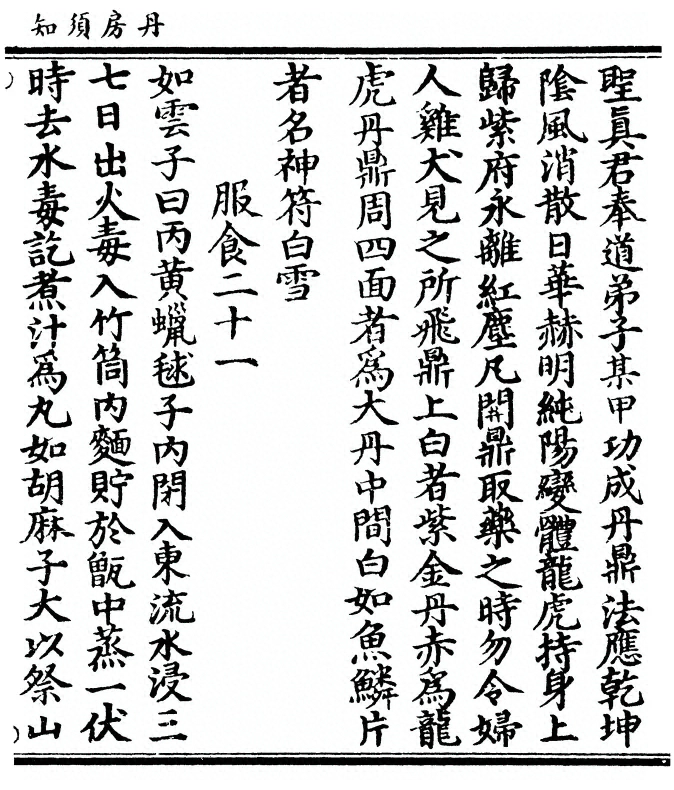 丹房須知
聖眞君奉道弟子某甲功成丹鼎法應乾坤
陰風消散日華赫明純陽變體龍虎持身上
歸紫府永離紅塵凡開鼎取藥之時勿令婦
人雞犬見之所飛鼎上白者紫金丹赤爲龍
虎丹鼎周四面者爲大丹中間白如魚鱗片
者名神符白雪
服食二十一
如雲子曰丙黄蠟毬子内閉入東流水浸三
七日出火毒入竹筒内麵貯於甑中蒸一伏
時去水毒訖煮汁爲丸如胡麻子大以祭山